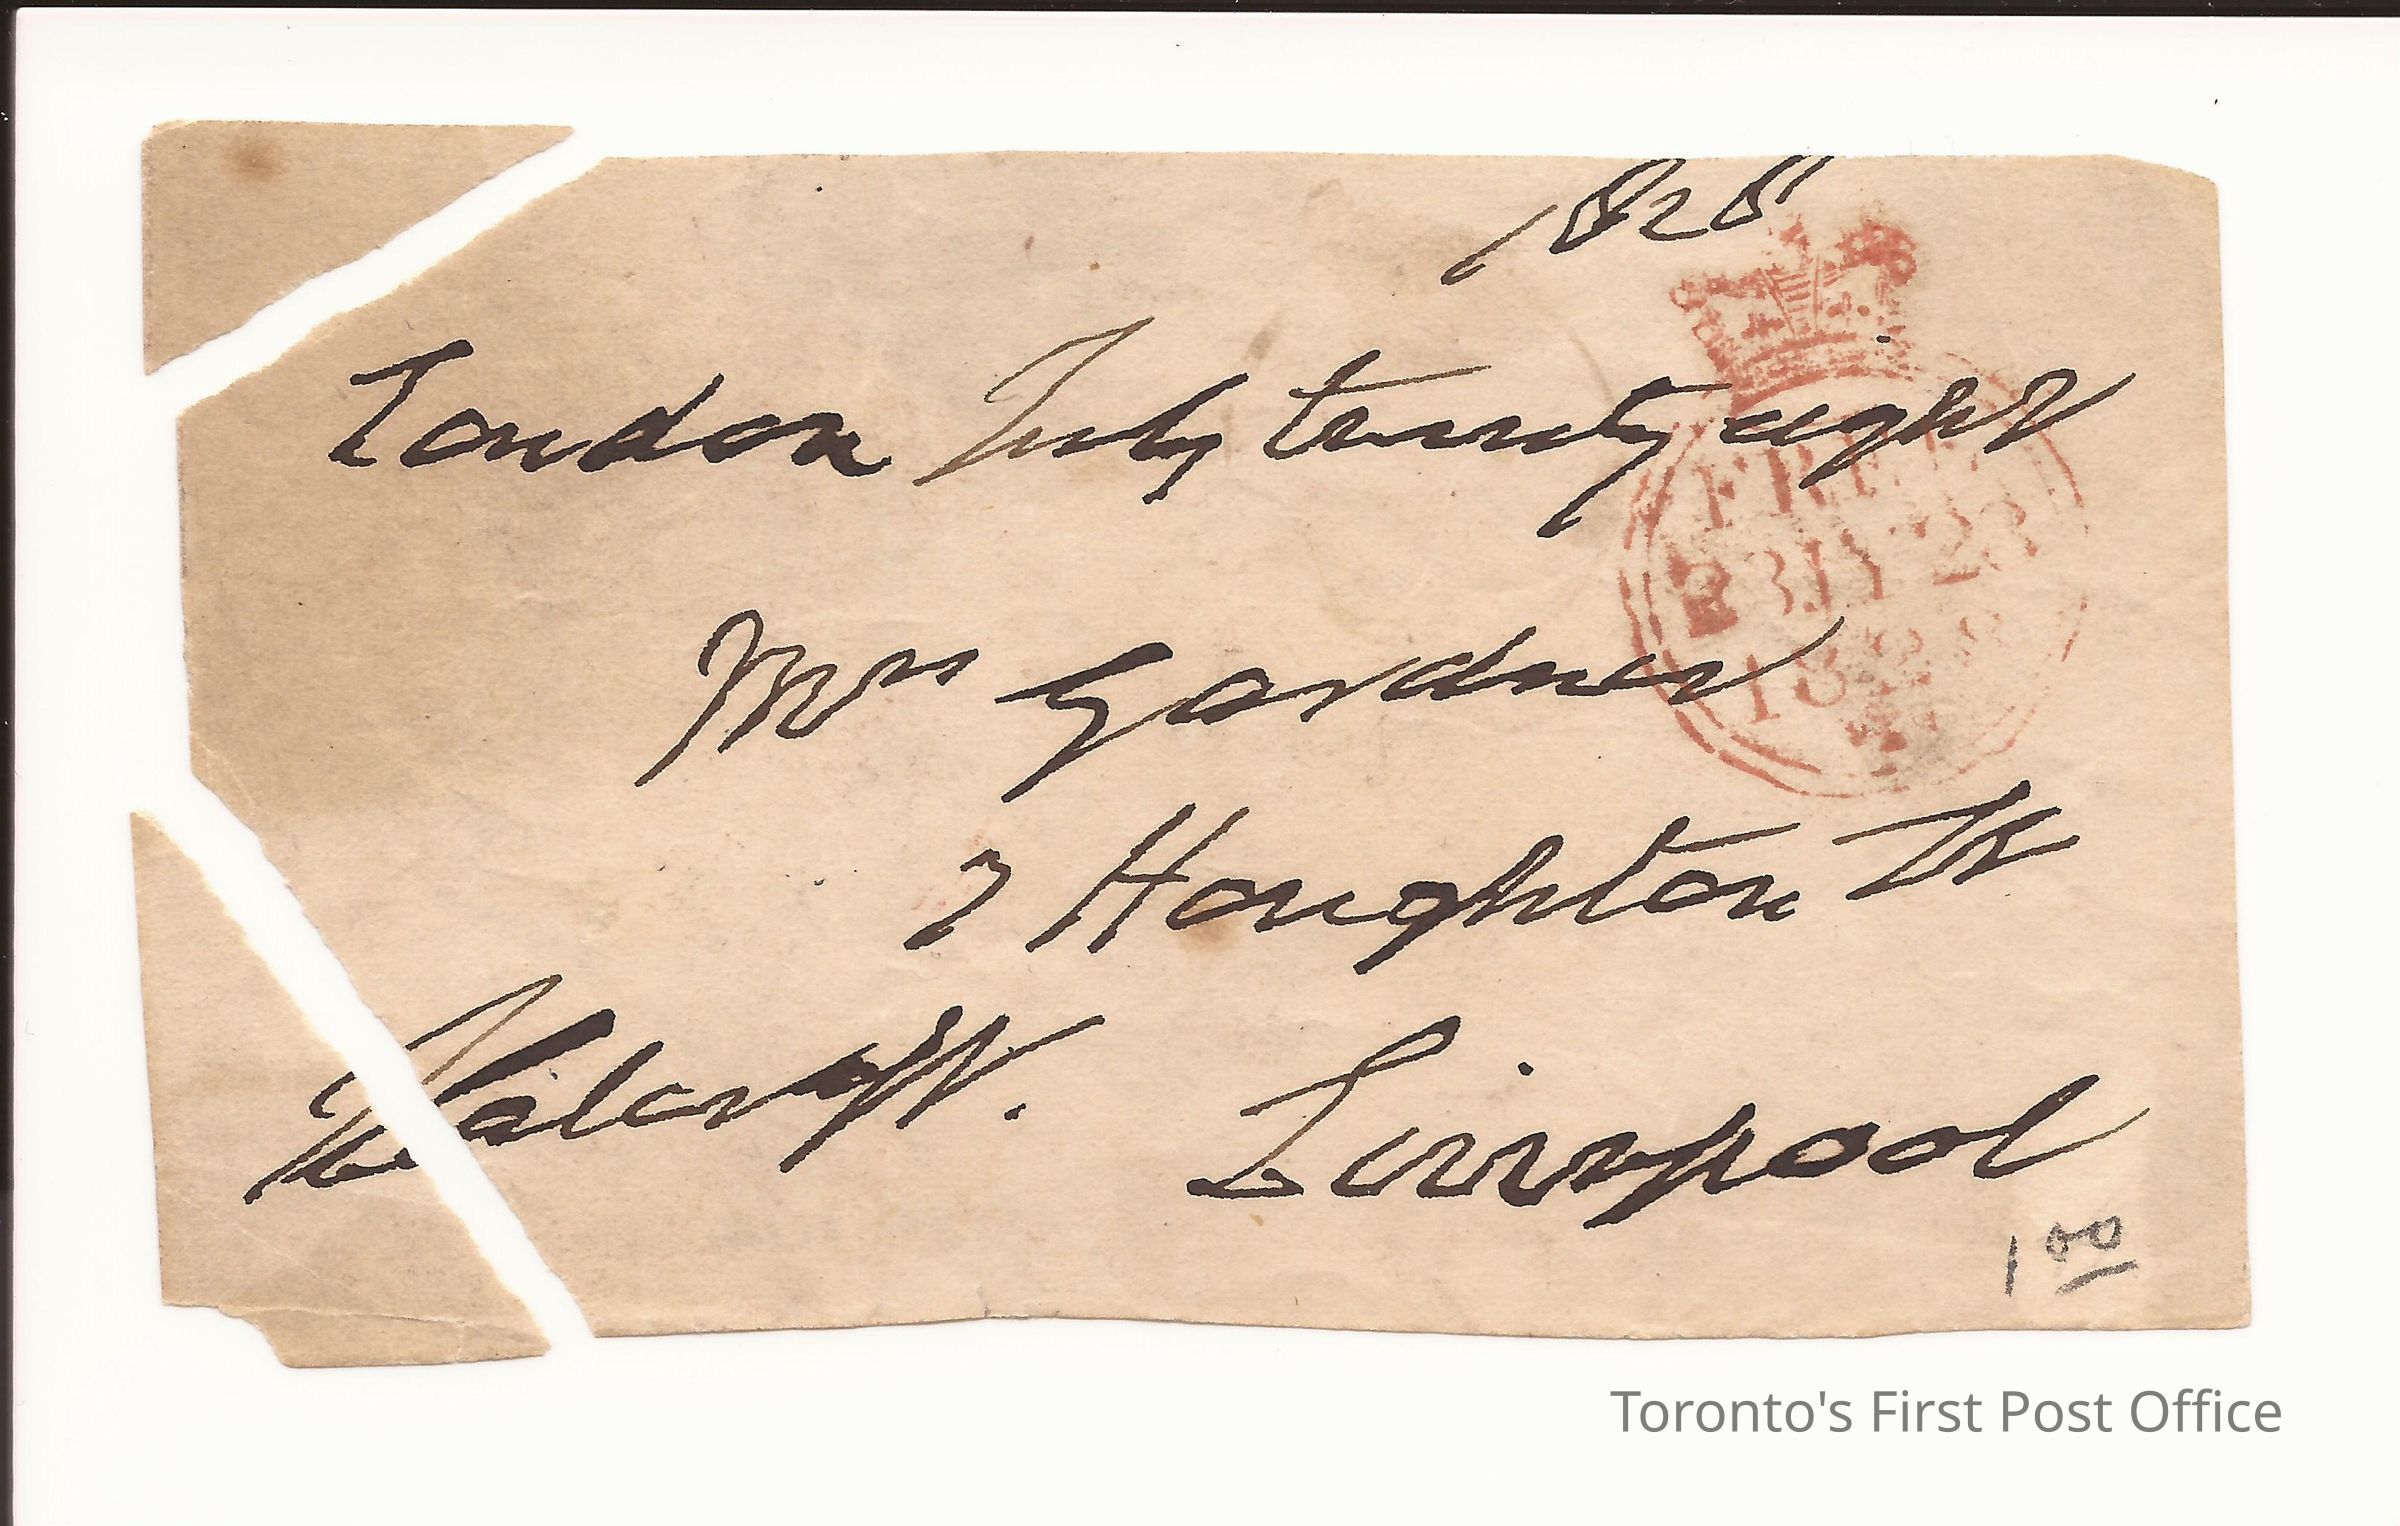 1828
London July twenty eight
FREE
28 JY 28
1828
Mrs Gardner
7 Houghton St
Liverpool
1 00
Toronto's First Post Office